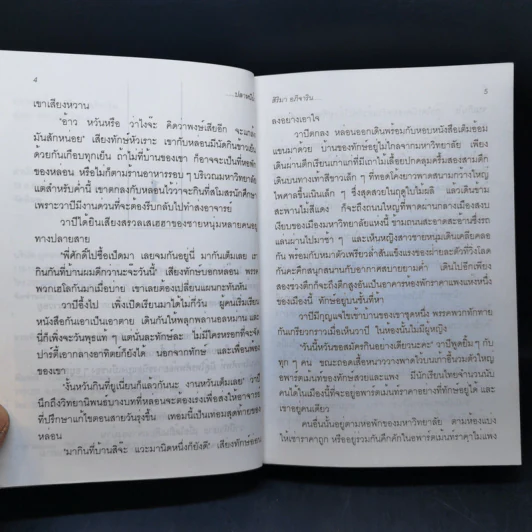 4
เขาเสียงหวาน
"อ้าว หวันหรือ ว่าไงจ๊ะ คิดว่าพงษ์เสียอีก จะแกล้ง
มันสักหน่อย" เสียงทักษ์หัวเราะ เขากับหล่อนมีนัดกินข้าวเย็น
ด้วยกันเกือบทุกเย็น ถ้าไม่ที่บ้านของเขา ก็อาจจะเป็นที่หอพัก
ของหล่อน หรือไม่ก็ตามร้านอาหารรอบๆ บริเวณมหาวิทยาลัย
แต่สำหรับค่ำนี้ เขาตกลงกับหล่อนไว้ว่าจะกินที่สโมสรนักศึกษา
เพราะวาปีมีงานด่วนที่จะต้องรีบกลับไปทำส่งอาจารย์
วาปีได้ยินเสียงสรวลเสเฮฮาของชายหนุ่มหลายคนอยู่
ทางปลายสาย
"พี่ศักดิ์ไปซื้อเป็ดมา เลยจมกันอยู่นี่ มากันเต็มเลย
กินกันที่บ้านผมดีกว่านะจ๊ะวันนี้" เสียงทักษ์บอกหล่อน
พวกเฮไลกันมาเมื่อบ่าย เขาเลยต้องเปลี่ยนแผนกะทันหัน
วาปีอึ้งไป เพิ่งเปิดเรียนมาได้ไม่กี่วัน ผู้คนเริ่มเรียน
หนังสือกันเอาเป็นเอาตาย เดินกันให้พลุกพลานอลหมาน และ
นี่ก็เพิ่งจะวันพุธแท้ๆ แต่นั่นละทักษ์ละ ไม่มีใครหรอกที่จะจัด
ปาร์ตี้เอากลางอาทิตย์ก็ยังได้ นอกจากทักษ์ และเพื่อนพ้อง
ของเขา
"งั้นหวันกินที่ยูเนียนก็แล้วกันนะ งานหวันเต็มเลย" วาปี
นึกถึงวิทยานิพนธ์บางบทที่หล่อนจะต้องเร่งเพื่อส่งให้อาจารย์
ที่ปรึกษาแก้ไขตอนสายวันรุ่งขึ้น เทอมนี้เป็นเทอมสุดท้ายของ
หล่อน
"มากินที่บ้านสิจ๊ะ แวะมานิดหนึ่งก็ยังดี" เสียงทักษ์
สิริมา อภิจาริน
5
ลงอย่างเอาใจ
วาปีตกลง หล่อนออกเดินพร้อมกับหอบหนังสือเต็มอ้อม
แขนมาด้วย บ้านของทักษ์อยู่ไม่ไกลจากมหาวิทยาลัย เพียง
เดินผ่านตึกเรียนเก่าแก่ที่มีเถาไม้เลื้อยปกคลุมครึ้มสองสามตึก
เดินบนทางเท้าสีขาวเล็กๆ ที่ทอดโค้งยาวพาดสนามกว้างใหญ่
ไพศาลขึ้นเนินเล็กๆ ซึ่งสุดสวยในฤดูใบไม้ผลิ แล้วเดินข้าม
สะพานไม้สีแดง ก็จะถึงถนนใหญ่ที่พาดผ่านกลางเมืองสงบ
เงียบของมหาวิทยาลัยแห่งนี้ ข้ามถนนสะอาดสะอ้านซึ่งรถ
แล่นผ่านไปมาช้าๆ และเห็นหญิงสาวชายหนุ่มเดินเคลียคลอ
กัน พร้อมกับหมาตัวเพรียวลำสันแข็งแรงของฝ่ายละตัวที่วิ่งโลด
กันคะคึกสนุกสนานกับอากาศสบายยามค่ำ เดินไปอีกเพียง
สองช่วงตึกก็จะถึงตึกสูงอันเป็นอาคารห้องพักราคาแพงแห่งหนึ่ง
ของเมืองนี้ ทักษ์อยู่บนชั้นที่ห้า
วาปีมีกุญแจไขเข้าบ้านของเขาชุดหนึ่ง พรรคพวกทักทาย
กันเกรียวกราวเมื่อเห็นวาปี ในห้องนั้นไม่มีผู้หญิง
"วันนี้หวันขอสมัครกินอย่างเดียวนะคะ" วาปีพูดยิ้มๆ กับ
ทุกๆ คน ขณะถอดเสื้อหนาวพาดไว้บนเก้าอี้นวมตัวใหญ่
อพาร์ตเม้นท์ของทักษ์สวยและแพง มีนักเรียนไทยจำนวนนับ
คนได้ในเมืองนี้ที่จะอยู่อพาร์ตเม้นท์ราคาอย่างที่ทักษ์อยู่ได้ และ
เขาอยู่คนเดียว
คนอื่นนั้นอยู่ตามหอพักของมหาวิทยาลัย ตามห้องแบ่ง
ให้เช่าราคาถูก หรืออยู่รวมกันตึกดักในอพาร์ตเม้นท์ราคาไม่แพง